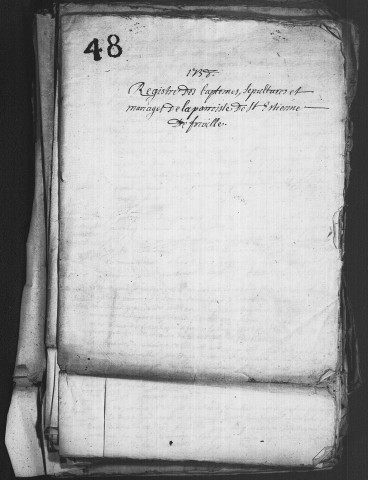 48
1755.
Registre des baptemes, sepultures et
mariages de la parroisse de St Estienne
de freville.